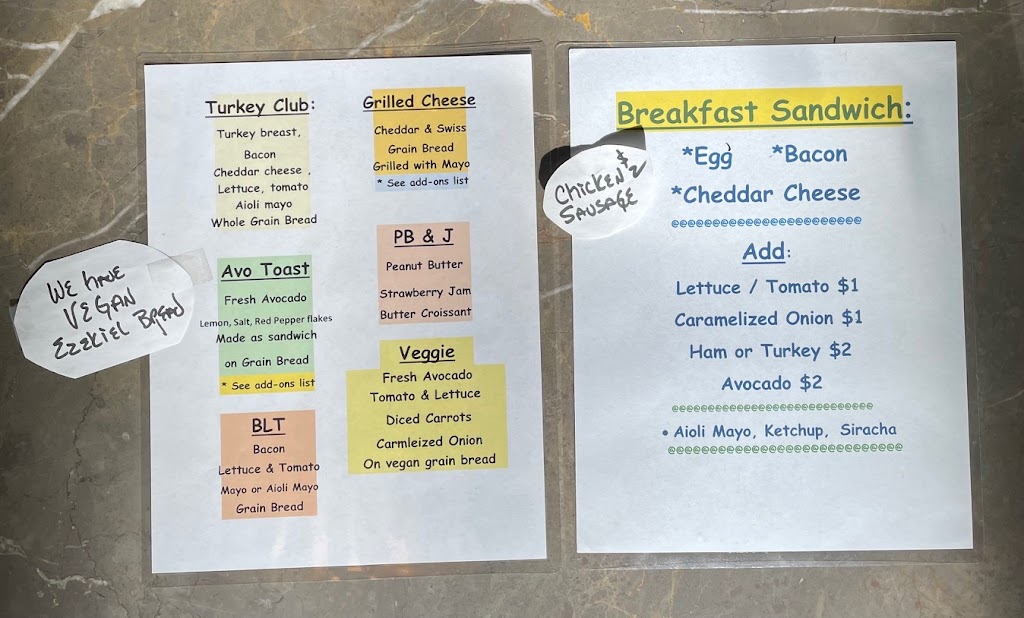 Turkey Club:
Turkey breast,
Bacon
Cheddar cheese ,
Lettuce, tomato
Aioli mayo
Whole Grain Bread
Avo Toast
Fresh Avocado
Lemon, Salt, Red Pepper flakes
Made as sandwich
on Grain Bread
* See add-ons list
BLT
Bacon
Lettuce & Tomato
Mayo or Aioli Mayo
Grain Bread
WE HAVE
VEGAN
EZEKIEL BREAD
Grilled Cheese
Cheddar & Swiss
Grain Bread
Grilled with Mayo
* See add-ons list
PB & J
Peanut Butter
Strawberry Jam
Butter Croissant
Veggie
Fresh Avocado
Tomato & Lettuce
Diced Carrots
Carmleized Onion
On vegan grain bread
Breakfast Sandwich:
*Egg *Bacon
*Cheddar Cheese
@@@@@@@@@@@@@@@@@@@@@@
Add:
Lettuce / Tomato $1
Caramelized Onion $1
Ham or Turkey $2
Avocado $2
@@@@@@@@@@@@@@@@@@@@@@@@
• Aioli Mayo, Ketchup, Siracha
@@@@@@@@@@@@@@@@@@@@@@@@@@@@
CHICKEN $2
SAUSAGE